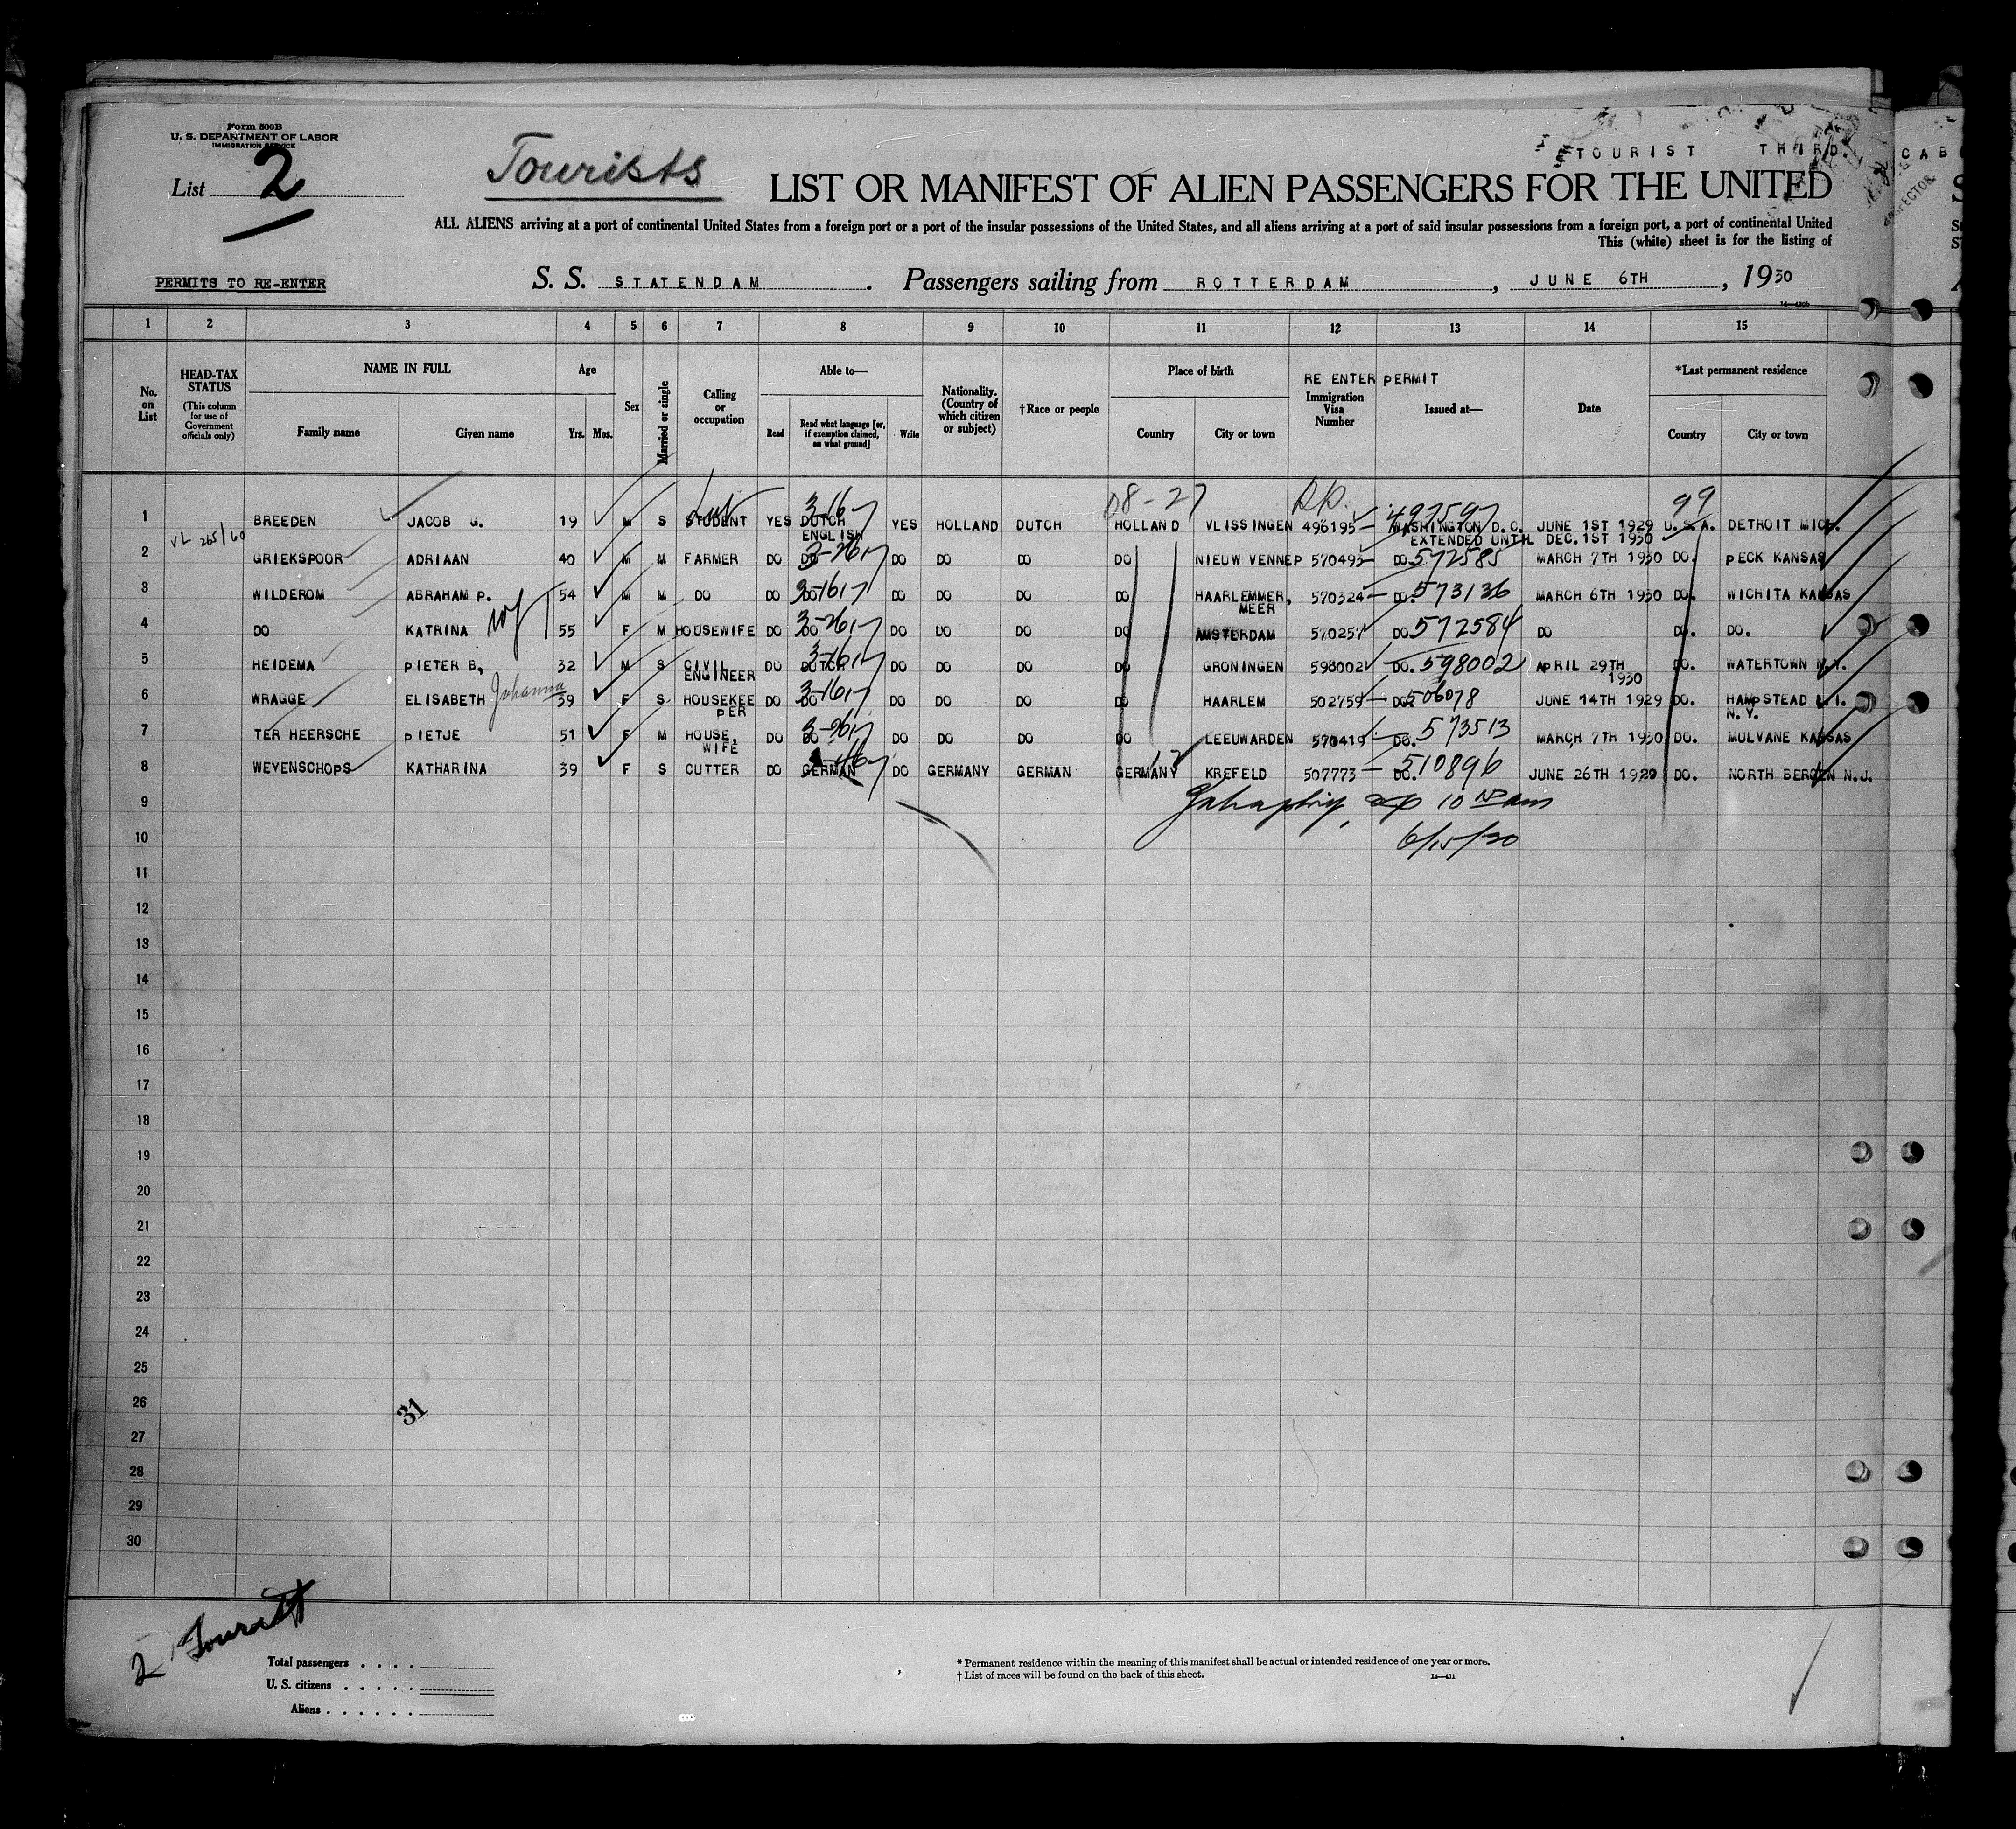 Form 500B
U. S. DEPARTMENT OF LABOR
IMMIGRATION SERVICE
List 2
Tourists
TOURIST THIRD CAB
INSPECTOR
LIST OR MANIFEST OF ALIEN PASSENGERS FOR THE UNITED
ALL ALIENS arriving at a port of continental United States from a foreign port or a port of the insular possessions of the United States, and all aliens arriving at a port of said insular possessions from a foreign port, a port of continental United
This (white) sheet is for the listing of
PERMITS TO RE-ENTER
S. S. STATENDAM. Passengers sailing from ROTTERDAM, JUNE 6TH, 1930
1 2 3 4 5 6 7 8 9 10 11 12 13 14 15
No. on List
HEAD-TAX STATUS
(This column for use of Government officials only)
NAME IN FULL
Family name Given name
Age
Yrs. Mos.
Sex
Married or single
Calling or occupation
Able to—
Read Read what language [or, if exemption claimed, on what ground] Write
Nationality. (Country of which citizen or subject)
†Race or people
Place of birth
Country City or town
RE ENTER PERMIT
Immigration Visa Number
Issued at—
Date
*Last permanent residence
Country City or town
08-27 99
3-167 497597
1 BREEDEN JACOB G. 19 M S STUDENT YES DUTCH YES HOLLAND DUTCH HOLLAND VLISSINGEN 496195 WASHINGTON D.C. JUNE 1ST 1929 U.S.A. DETROIT MICH.
ENGLISH EXTENDED UNTIL DEC. 1ST 1930
VL 265/60
2 GRIEKSPOOR ADRIAAN 40 M M FARMER DO DO DO DO DO DO NIEUW VENNEP 570495 DO. 572585 MARCH 7TH 1930 DO. PECK KANSAS
3 WILDEROM ABRAHAM P. 54 M M DO DO DO DO DO DO DO HAARLEMMER, 570324 DO. 573136 MARCH 6TH 1930 DO. WICHITA KANSAS
MEER
4 DO KATRINA wf 55 F M HOUSEWIFE DO DO DO DO DO DO AMSTERDAM 570257 DO. 572584 DO DO. DO.
5 HEIDEMA PIETER B, 32 M S CIVIL DO DUTCH DO DO DO DO GRONINGEN 598002 DO. 598002 APRIL 29TH DO. WATERTOWN N.Y.
ENGINEER 1930
6 WRAGGE ELISABETH Johanna 39 F S HOUSEKEE DO DO DO DO DO DO HAARLEM 502759 DO. 506078 JUNE 14TH 1929 DO. HAMPSTEAD L.I.
PER N.Y.
7 TER HEERSCHE PIETJE 51 F M HOUSE, DO DO DO DO DO DO LEEUWARDEN 570419 DO. 573513 MARCH 7TH 1930 DO. MULVANE KANSAS
WIFE
8 WEYENSCHOPS KATHARINA 39 F S CUTTER DO GERMAN DO GERMANY GERMAN GERMANY KREFELD 507773 DO. 510896 JUNE 26TH 1929 DO. NORTH BERGEN N.J.
9
10 6/15/30
11
12
13
14
15
16
17
18
19
20
21
22
23
24
25
26
31
27
28
29
30
2 Tourist
Total passengers
U. S. citizens
Aliens
* Permanent residence within the meaning of this manifest shall be actual or intended residence of one year or more.
† List of races will be found on the back of this sheet.
14—431